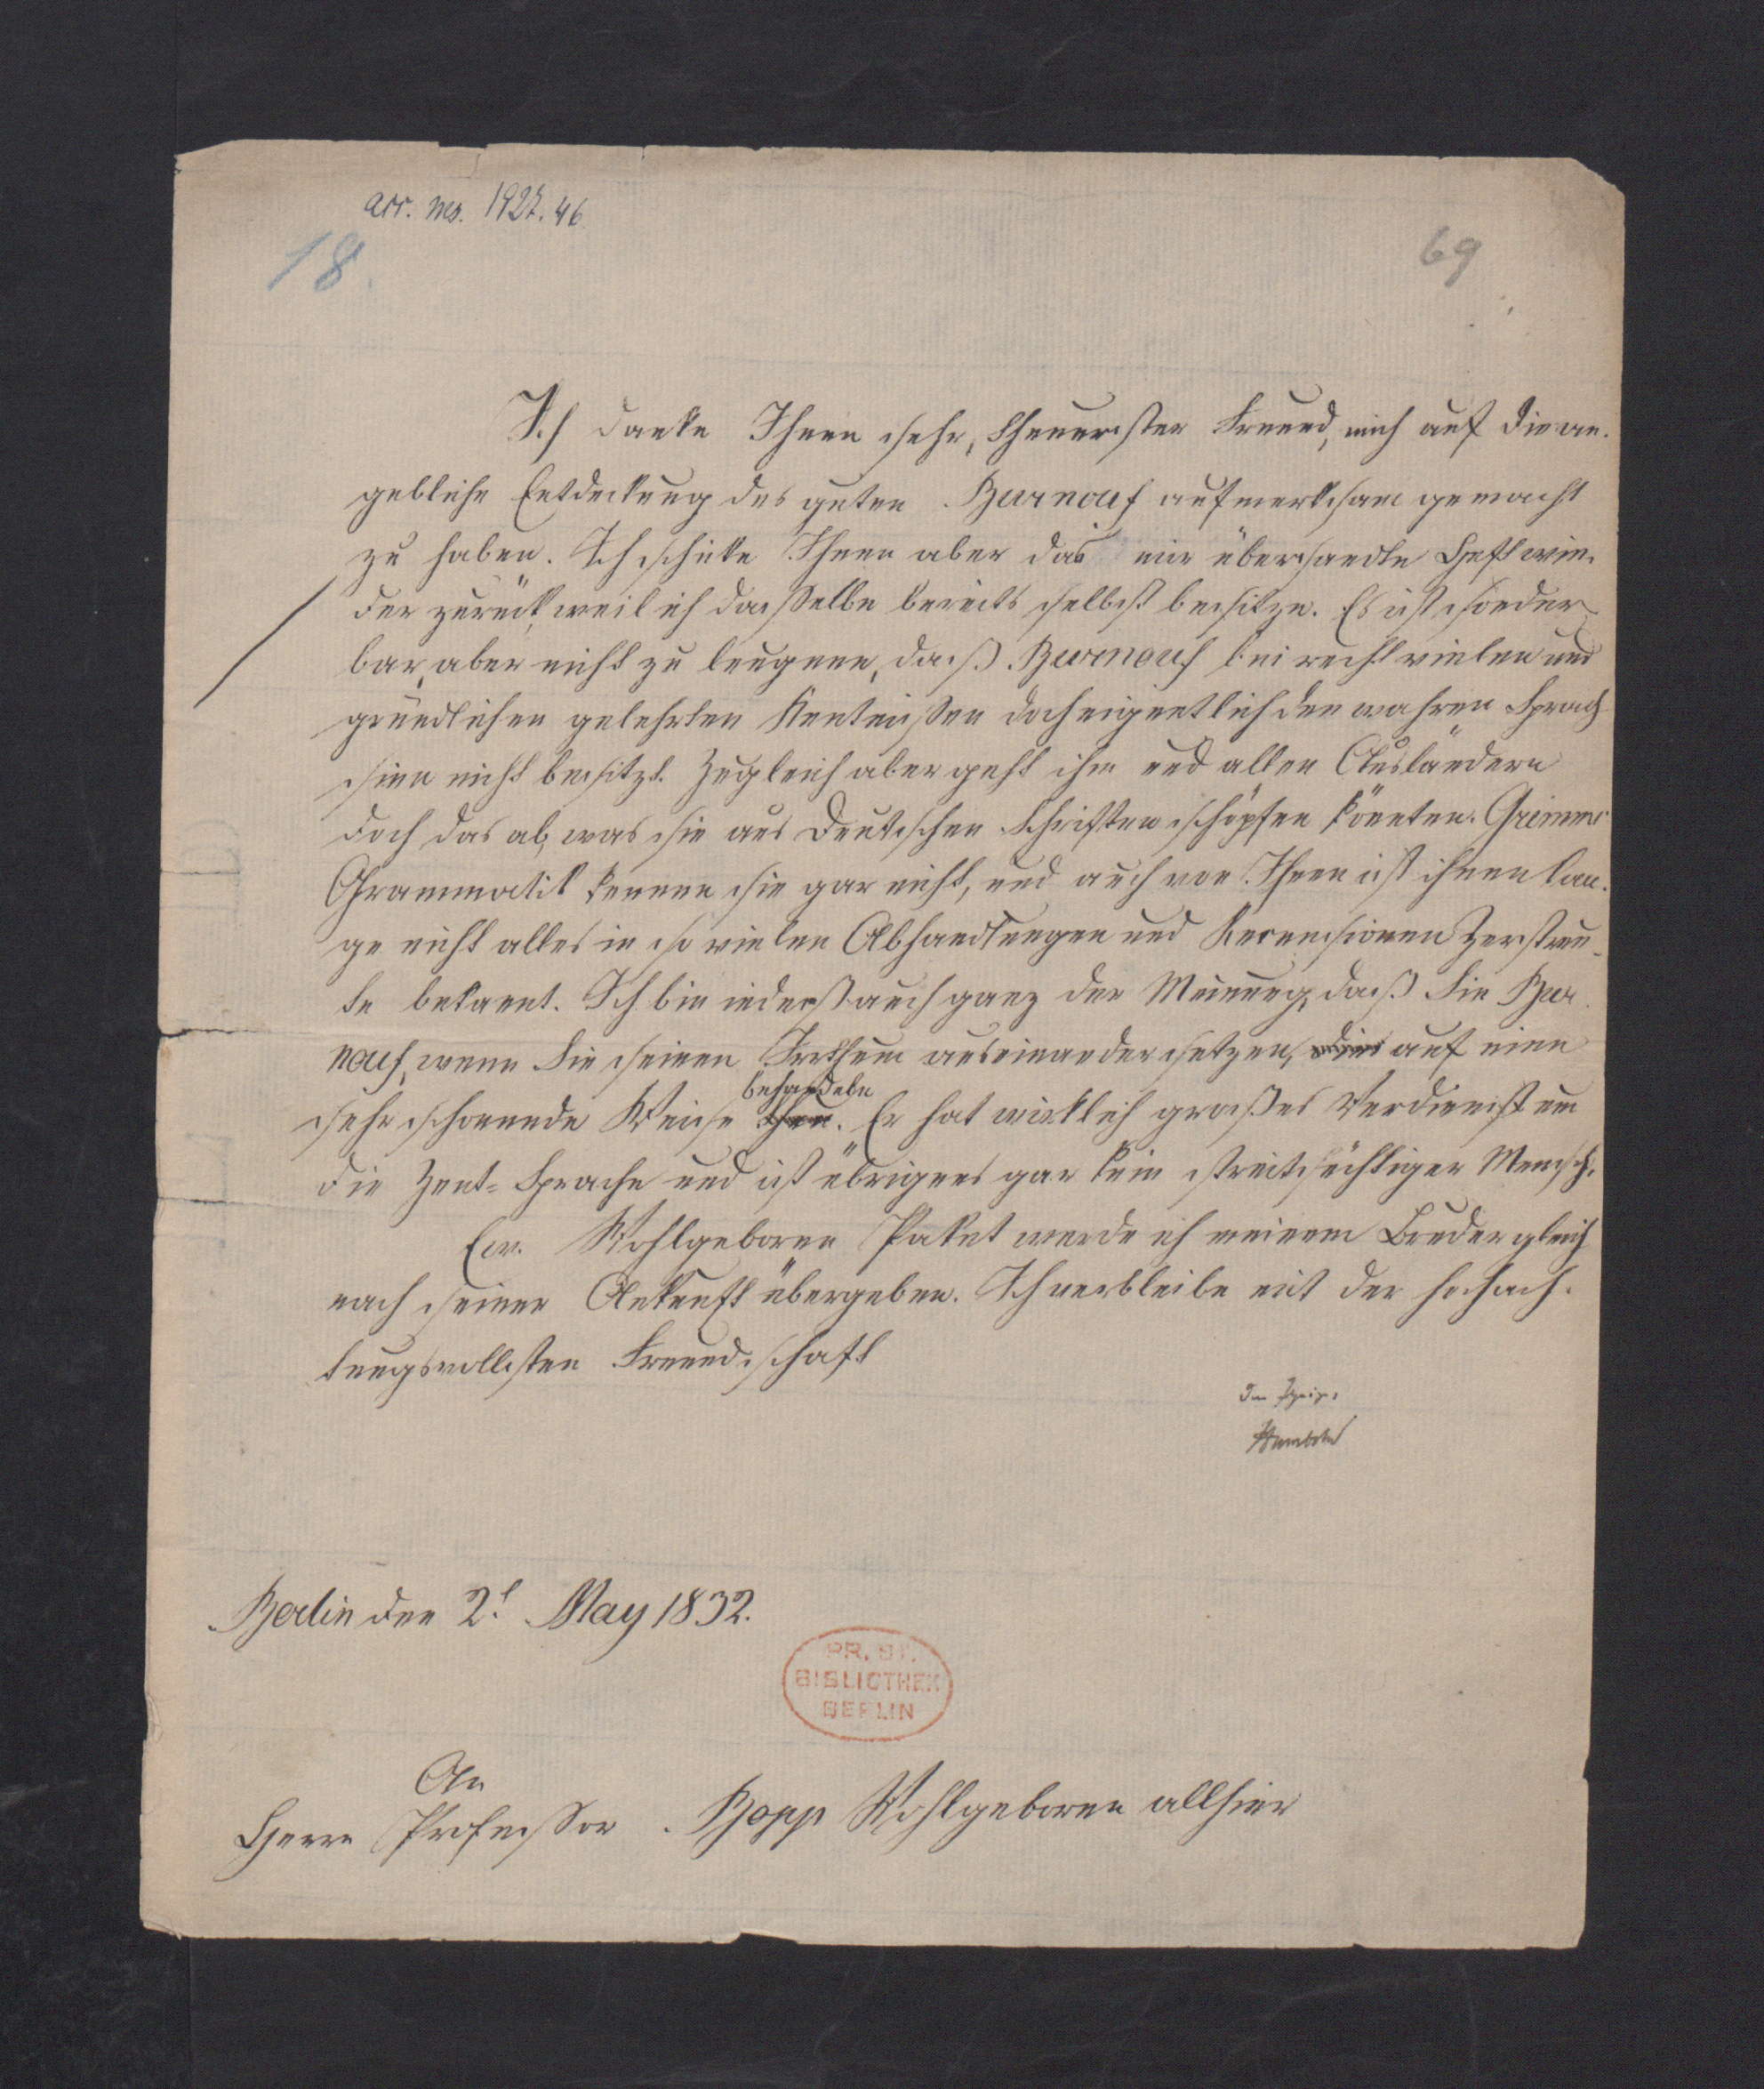 acc. ms. 1927. 46
18.
69
Ich danke Ihnen sehr, theuerster Freund, mich auf die an-
gebliche Entdeckung des guten Burnouf aufmerksam gemacht
zu haben. Ich schicke Ihnen aber das mir übersandte Heft wie-
der zurück, weil ich dasselbe bereits selbst besitze. Es ist sonder-
bar, aber nicht zu leugnen, daß Burnouf bei recht vielen und
gründlichen gelehrten Kentnißen doch eigentlich den wahren Sprach-
sinn nicht besitzt. Zugleich aber geht ihm und allen Ausländern
doch das ab, was sie aus Deutschen Schriften schöpfen könnten. Grimms
Grammatik kennen sie gar nicht, und auch von Ihnen ist ihnen lan-
ge nicht alles in so vielen Abhandlungen und Recensionen Zerstreu-
te bekannt. Ich bin indeß auch ganz der Meinung, daß Sie Bur-
nouf, wenn Sie seinen Irrthum auseinandersetzen, dies auf eine
behandeln
sehr schonende Weise thun. Er hat wirklich großes Verdienst um
die Zent-Sprache und ist übrigens gar kein streitsüchtiger Mensch.
Ew. Wohlgeboren Paket werde ich meinem Bruder gleich
nach seiner Ankunft übergeben. Ich verbleibe mit der hochach-
tungsvollsten Freundschaft
Der Ihrige,
Humboldt
Berlin den 2t May 1832.
PR. ST.
BIBLIOTHEK
BERLIN
An
Herrn Professor Bopp Wohlgeboren allhier